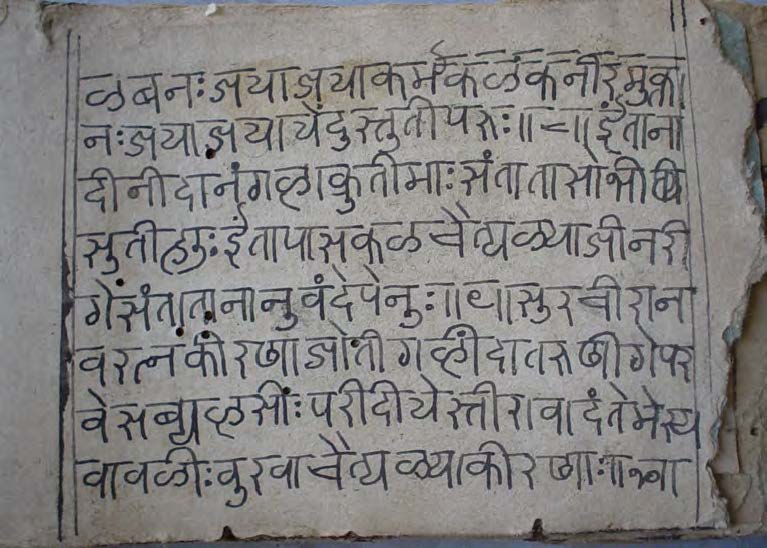 ळबनः जयाजयाकर्मकळंकनीरमुक्ता
नः जयाजयायेंदुस्तुतीपरुः॥२॥ ईताना
दीनीदानंगळाकुतीमाः संतातासोभी
सुतीहरुः ईतापासकळचैत्यळ्याजीनरी
गेसंतातानानुवंदेपेनुः॥ सुरचीरान
वरत्नंकीरणाजोती गळीदातरुणीगेपर
वेसब्यळसीः परीदीयेस्तीरावादंतेमेस्य
वावळीः वुरवाचैत्यळ्याकीरणाः॥